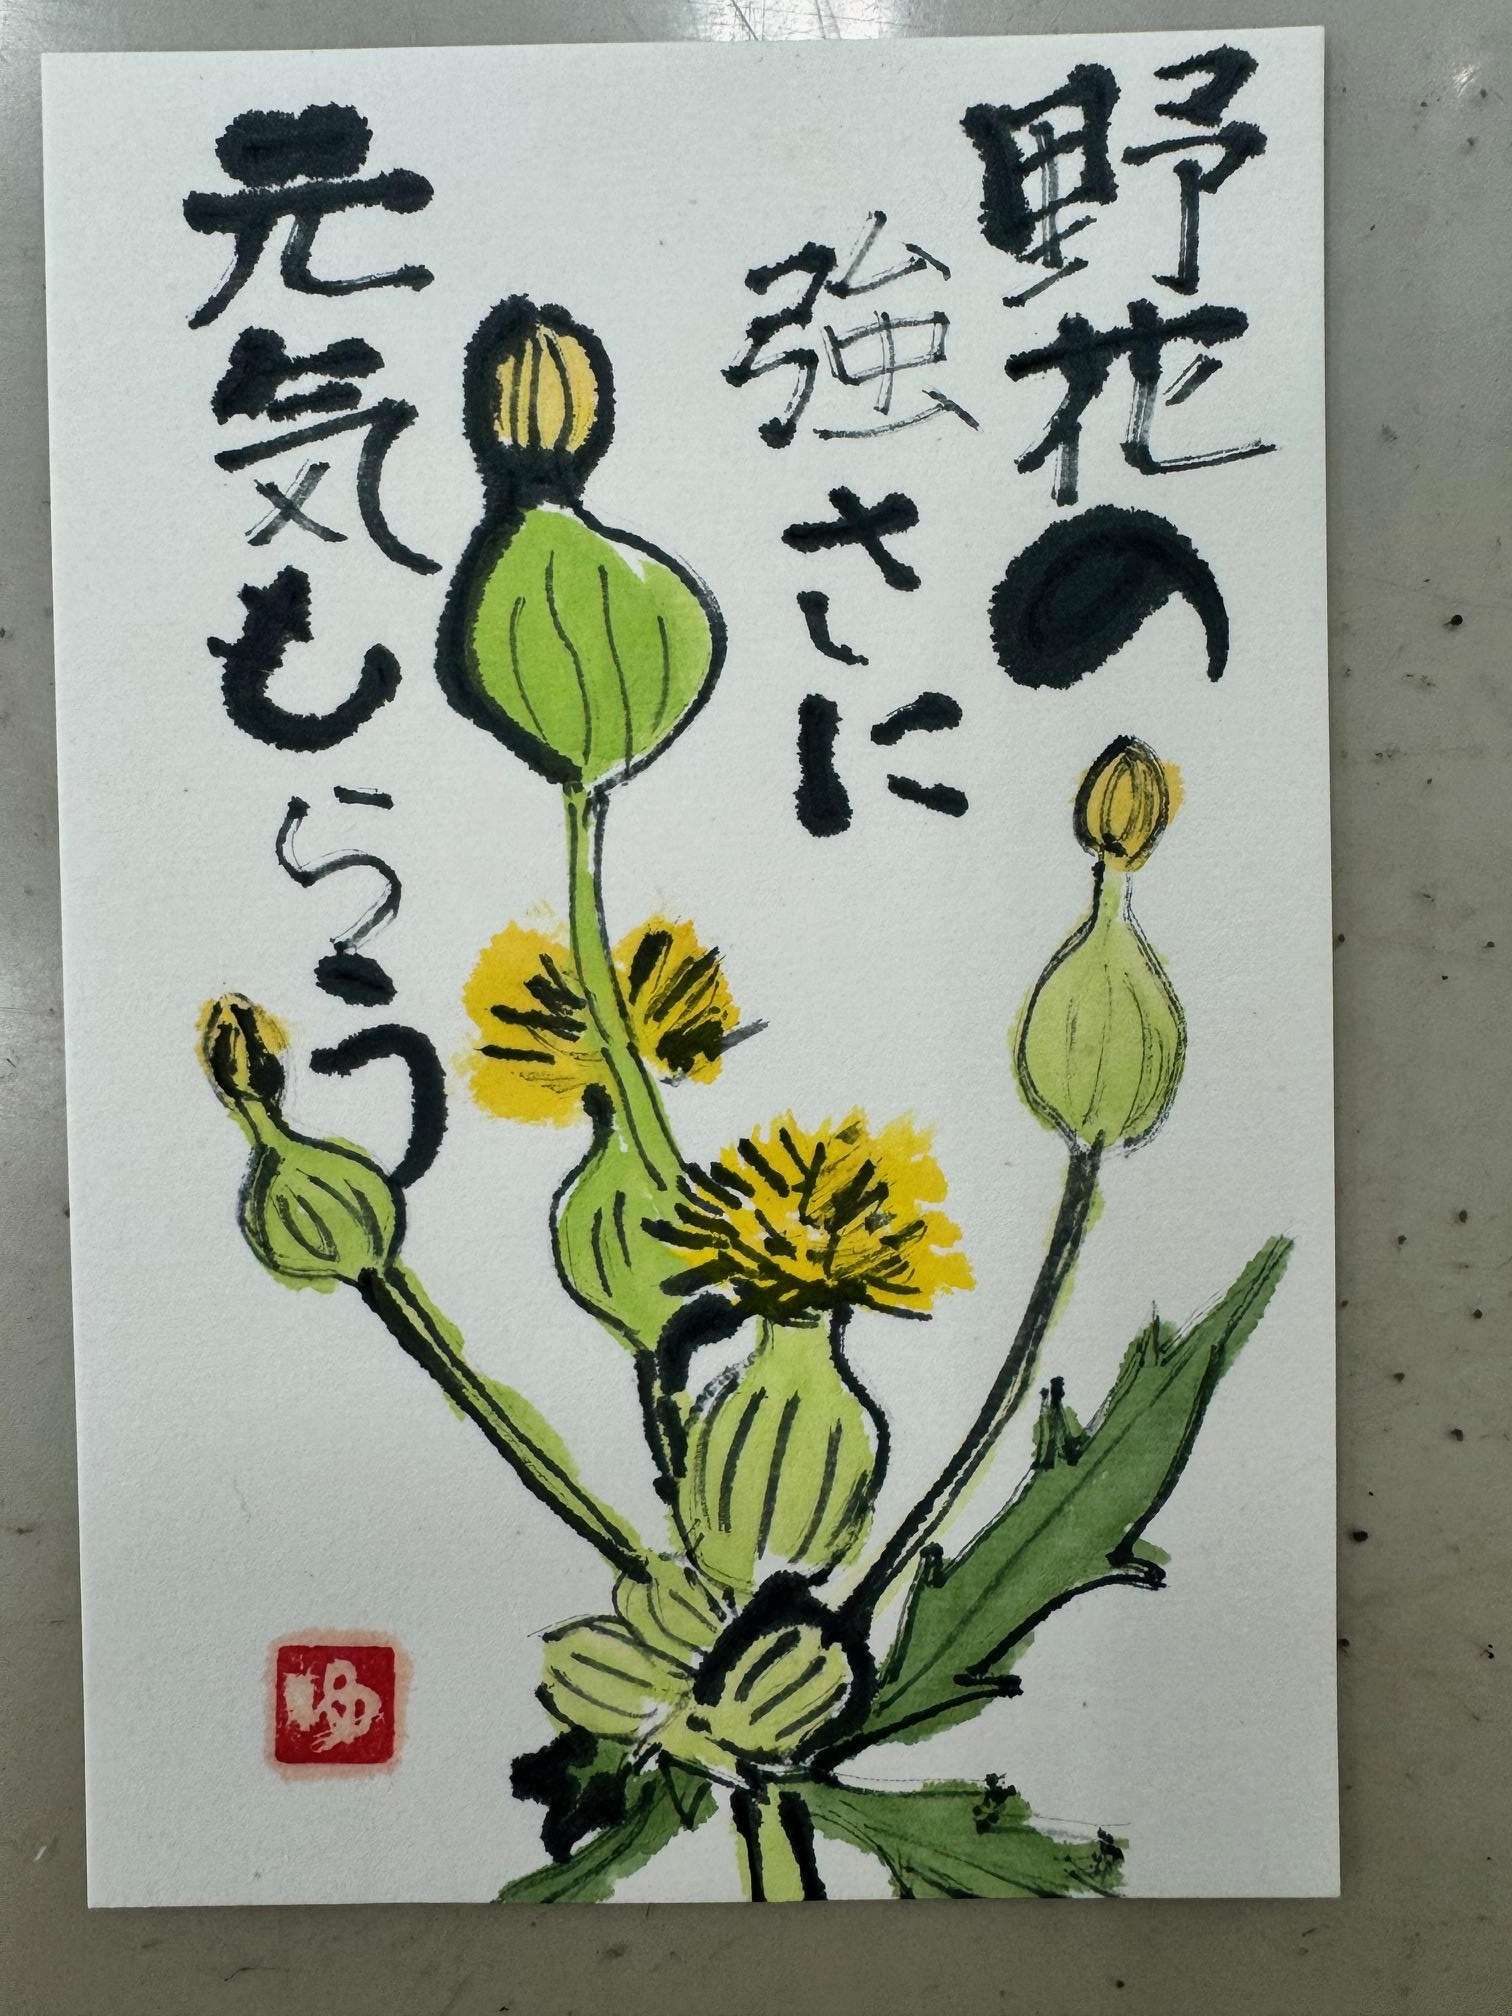 野花の
強さに
元気もらう
ゆ